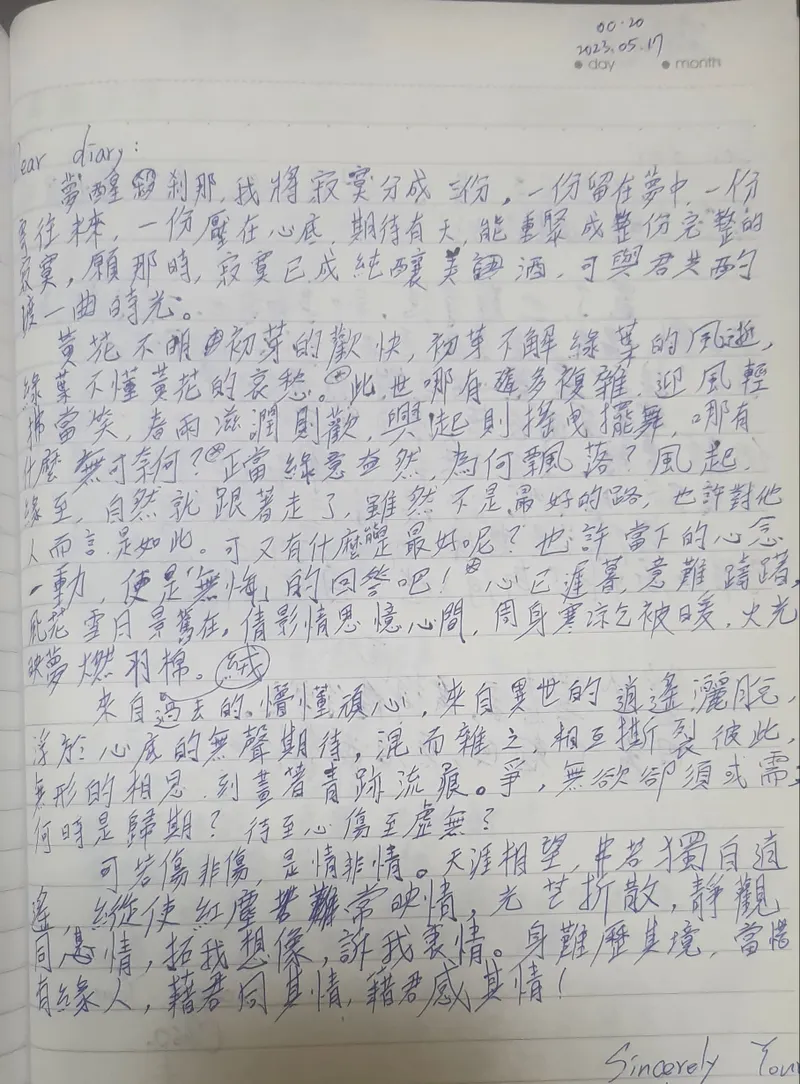 00:20
2023.05.17
day month
ear diary:
夢醒剎那,我將寂寞分成三份,一份留在夢中,一份
往未來,一份壓在心底,期待有天,能重聚成整份完整的
寂寞,願那時,寂寞已成純釀美酒,可與君共酌
渡一曲時光。
黃花不明初芽的歡快,初芽不解綠葉的風逝,
綠葉不懂黃花的哀愁。此世哪有許多複雜,迎風輕
拂當笑,春雨滋潤則歡,興起則搖曳擺舞,哪有
什麼無可奈何?正當綠意盎然,為何飄落?風起,
緣至,自然就跟著走了,雖然不是最好的路,也許對他
人而言是如此。可又有什麼能是最好呢?也許當下的心念
一動,便是「無悔」的回答吧!心已遲暮,意難躊躇,
風花雪月景篤在,倩影情思憶心間,周身寒涼乞被暖,火光
映夢燃羽棉。絨
來自過去的懵懂頑心,來自異世的逍遙灑脫,
浮於心底的無聲期待,混而雜之,相互撕裂彼此,
無形的相思,刻蓋著青跡流痕。爭,無欲卻須或需
何時是歸期?待至心傷至虛無?
可若傷非傷,是情非情。天涯相望,若獨自逍
遙,縱使紅塵難常映情,光芒折散,靜觀
同惎情,拓我想像,訴我衷情。身難歷其境,當惜
有緣人,藉君同其情,藉君感其情!
Sincerely Your